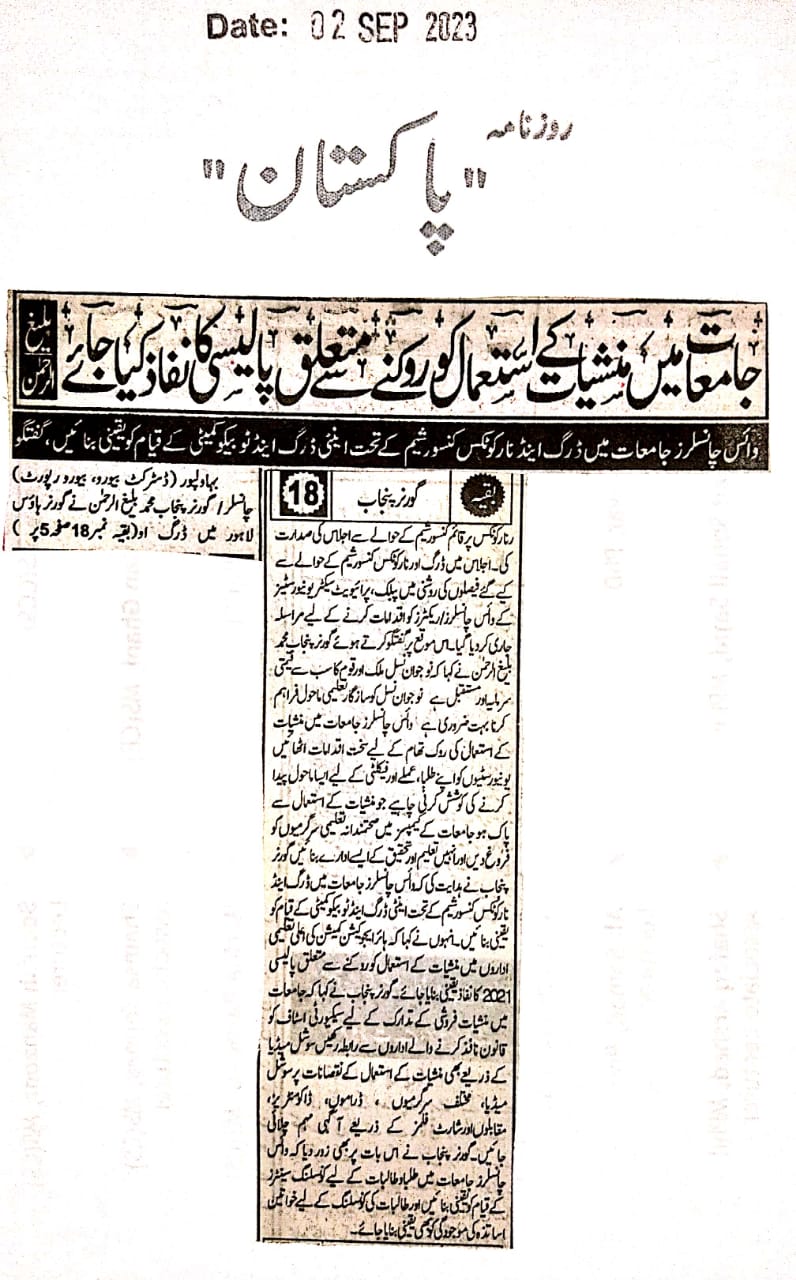 Date: 02 SEP 2023
روزنامہ
"پاکستان"
جامعات میں منشیات کے استعمال کو روکنے سے متعلق پالیسی کا نفاذ کیا جائے
بلیغ الرحمٰن
وائس چانسلرز جامعات میں ڈرگ اینڈ نارکوٹکس کنسورشیم کے تحت اینٹی ڈرگ اینڈ ٹوبیکو کمیٹی کے قیام کو یقینی بنائیں، گفتگو
بہاولپور (ڈسٹرکٹ بیورو، بیورو رپورٹ)
چانسلر/گورنر پنجاب محمد بلیغ الرحمٰن نے گورنر ہاؤس
لاہور میں ڈرگ او (بقیہ نمبر 18 صفحہ 5 پر)
بقیہ گورنر پنجاب 18
رنارکوٹکس پر قائم کنسورشیم کے حوالے سے اجلاس کی صدارت
کی۔ اجلاس میں ڈرگ اور نارکوٹکس کنسورشیم کے حوالے سے
کیے گئے فیصلوں کی روشنی میں پبلک، پرائیویٹ سیکٹر یونیورسٹیز
کے وائس چانسلرز/ریکٹرز کو اقدامات کرنے کے لیے مراسلہ
جاری کر دیا گیا۔ اس موقع پر گفتگو کرتے ہوئے گورنر پنجاب محمد
بلیغ الرحمٰن نے کہا کہ نوجوان نسل ملک اور قوم کا سب سے قیمتی
سرمایہ اور مستقبل ہے نوجوان نسل کو سازگار تعلیمی ماحول فراہم
کرنا بہت ضروری ہے وائس چانسلرز جامعات میں منشیات
کے استعمال کی روک تھام کے لیے سخت اقدامات اٹھائیں
یونیورسٹیوں کو اپنے طلبا، عملے اور فیکلٹی کے لیے ایسا ماحول پیدا
کرنے کی کوشش کرنی چاہیے جو منشیات کے استعمال سے
پاک ہو جامعات کے کیمپسز میں صحتمندانہ تعلیمی سرگرمیوں کو
فروغ دیں اور انہیں تعلیم اور تحقیق کے ایسے ادارے بنائیں گورنر
پنجاب نے ہدایت کی کہ وائس چانسلرز جامعات میں ڈرگ اینڈ
نارکوٹکس کنسورشیم کے تحت اینٹی ڈرگ اینڈ ٹوبیکو کمیٹی کے قیام کو
یقینی بنائیں۔ انہوں نے کہا کہ ہائر ایجوکیشن کمیشن کی اعلیٰ تعلیمی
اداروں میں منشیات کے استعمال کو روکنے سے متعلق پالیسی
2021 کا نفاذ یقینی بنایا جائے۔ گورنر پنجاب نے کہا کہ جامعات
میں منشیات فروشی کے تدارک کے لیے سیکیورٹی اسٹاف کو
قانون نافذ کرنے والے اداروں سے رابطہ رکھیں سوشل میڈیا
کے ذریعے بھی منشیات کے استعمال کے نقصانات پر سوشل
میڈیا، مختلف سرگرمیوں، ڈراموں، ڈاکومنٹریز،
مقابلوں اور شارٹ فلمز کے ذریعے آگہی مہم چلائی
جائیں۔ گورنر پنجاب نے اس بات پر بھی زور دیا کہ وائس
چانسلرز جامعات میں طلبا و طالبات کے لیے کونسلنگ سینٹرز
کے قیام کو یقینی بنائیں اور طالبات کی کونسلنگ کے لیے خواتین
اساتذہ کی موجودگی کو بھی یقینی بنایا جائے۔